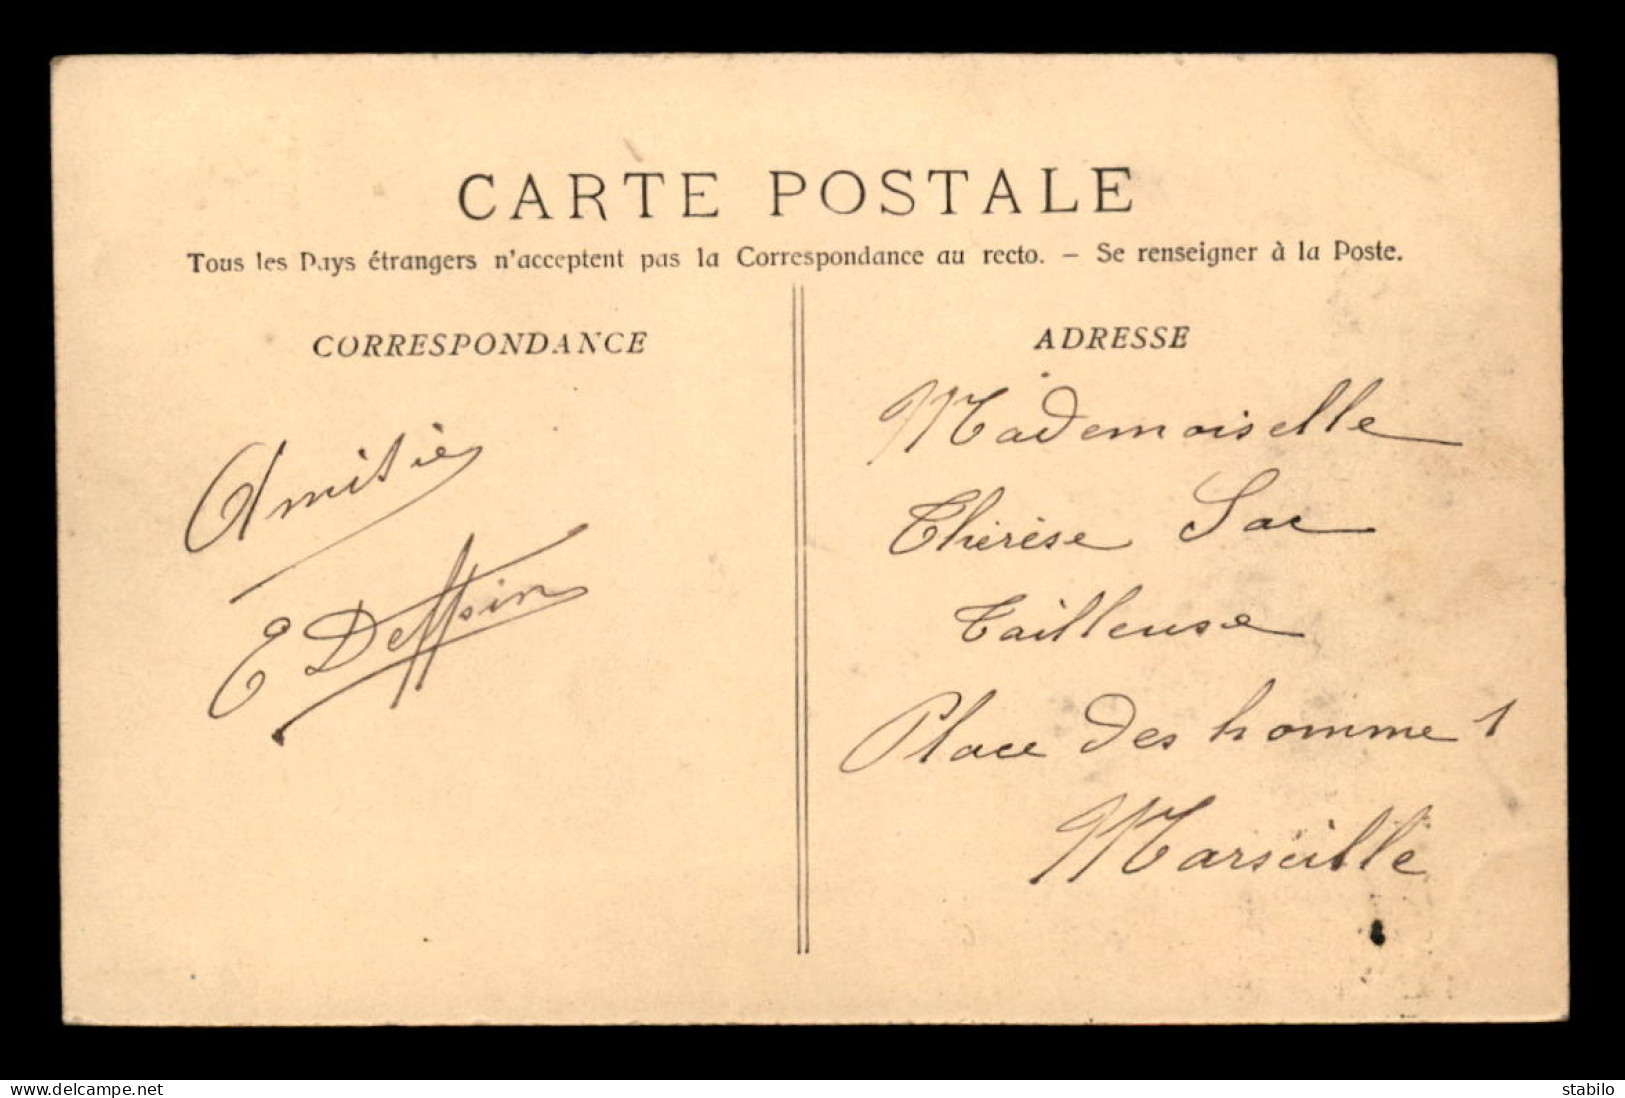 CARTE POSTALE
Tous les Pays étrangers n'acceptent pas la Correspondance au recto. – Se renseigner à la Poste.
CORRESPONDANCE
Amitiés
E Deffsin
ADRESSE
Mademoiselle
Thérèse Sac
Tailleuse
Place des homme 1
Marseille
www.delcampe.net
stabilo